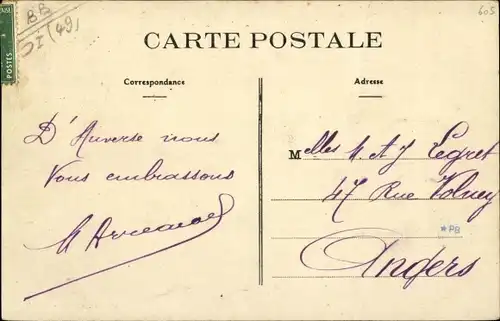 BB
I (49)
605
POSTES
CARTE POSTALE
Correspondance
Adresse
D'Auverse nous
Vous embrassons
Melles M. A J Legret
47 Rue Volney
*PB
Angers